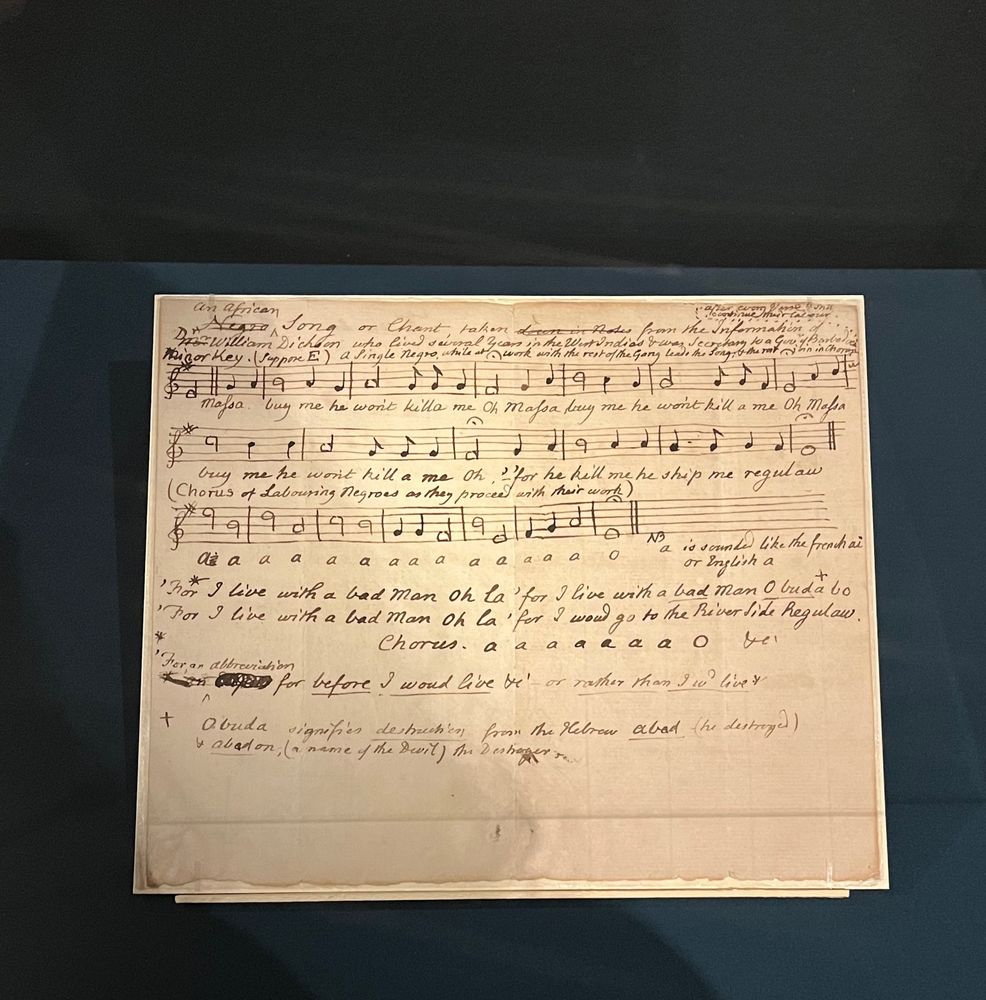 an African
after every Verse
continue their labour
Negro Song or Chant, taken down in Notes from the Information of
Dr William Dickson who lived several Years in the West Indies & was Secretary to a Govr of Barbadoes
Minor Key. (Suppose E) A Single Negro, while at work with the rest of the Gang leads the Song, & the rest join in Chorus
Massa buy me he won't killa me Oh Massa buy me he won't kill a me Oh Massa
buy me he won't kill a me Oh, 'for he kill me he ship me regulaw
(Chorus of Labouring Negroes as they proceed with their work)
a a a a a a a a a a a a O
NB a is sounded like the french ai
or English a
'For* I live with a bad Man Oh la 'for I live with a bad Man Obuda+ bo
'For I live with a bad Man Oh la 'for I woud go to the River Side Regulaw.
Chorus. a a a a a a a O &c
*
'For, an abbreviation
for before I woud live &c or rather than I wd live &
+ Obuda signifies destruction from the Hebrew abad (he destroyed)
& abadon, (a name of the Devil) the Destroyer